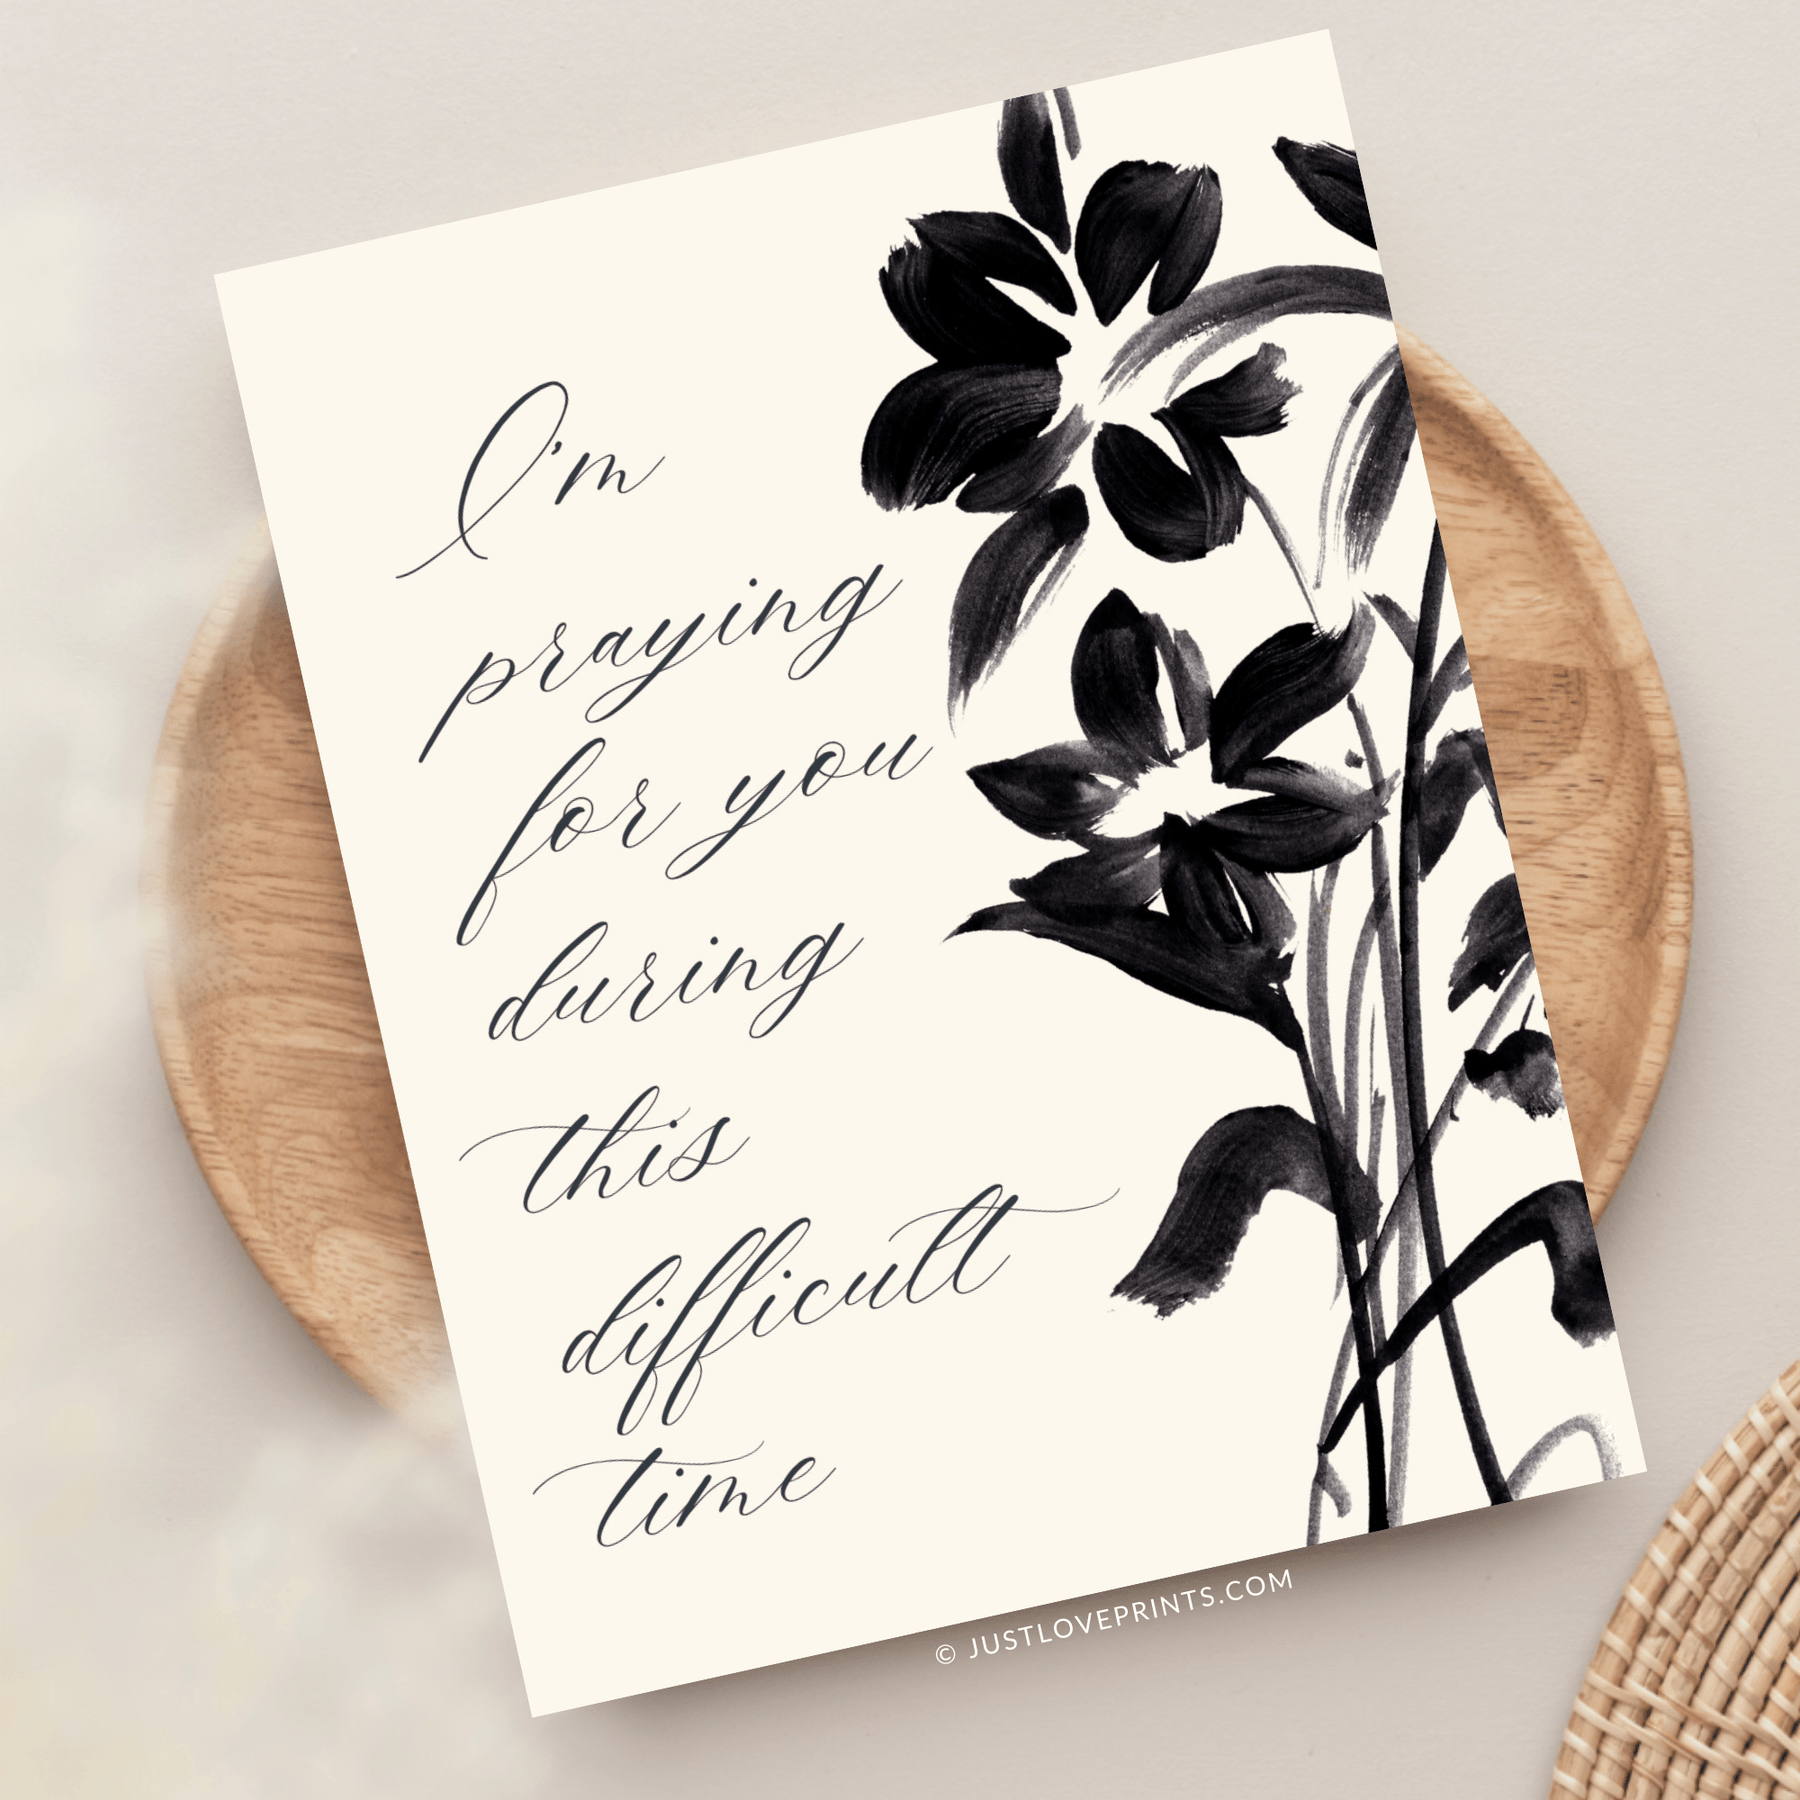 I'm
praying
for you
during
this
difficult
time
© JUSTLOVEPRINTS.COM